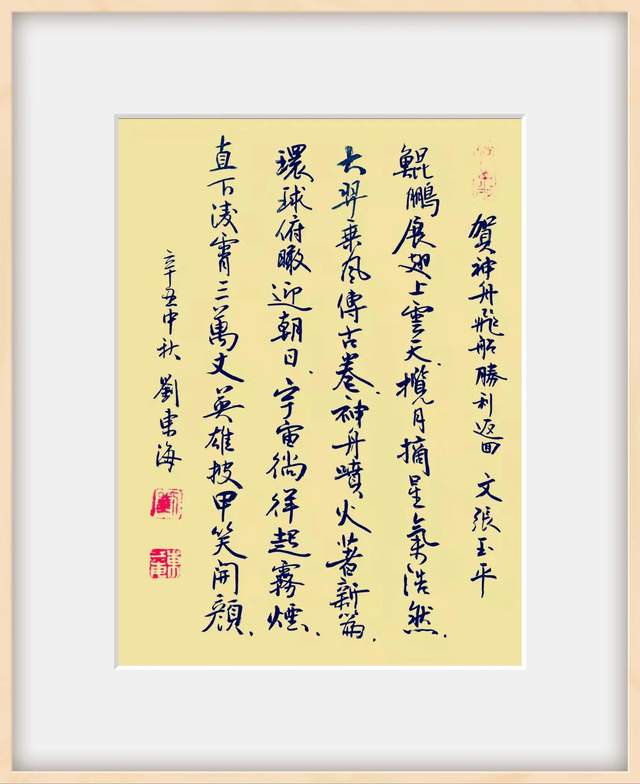 賀神舟飛船勝利返回 文張玉平
鯤鵬展翅上雲天.攬月摘星氣浩然.
大羿乘風傳古卷.神舟噴火著新篇.
環球俯瞰迎朝日.宇宙徜徉起霧煙.
直下淩霄三萬丈英雄披甲笑開顏.
辛丑中秋 劉東海